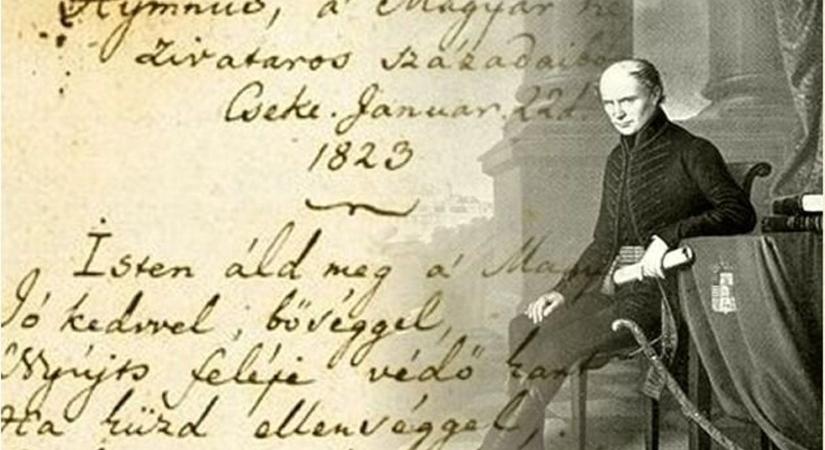 Hymnus, a' Magyar
zivataros századaibó
Cseke. Januar. 22d.
1823
Isten áld meg a' Magy
Jó kedvvel, bőséggel,
Nyújts feléje védő kart
Ha küzd ellenséggel,